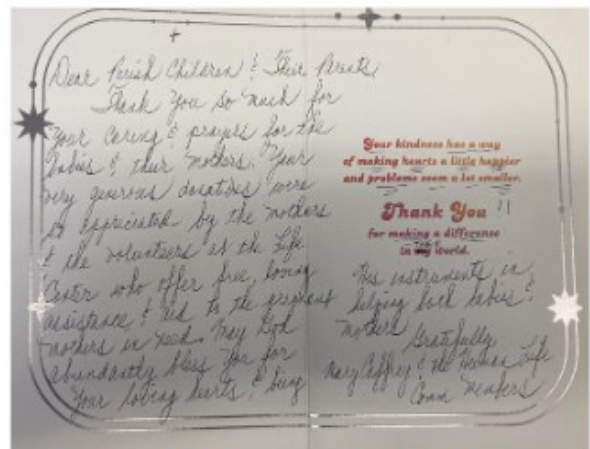 Dear Parish Children & Their Parents,
Thank You so much for
your caring & prayers for the
babies & their mothers. Your
very generous donations were
so appreciated by the mothers
& the volunteers at the Life
Center who offer free, loving
assistance & aid to the pregnant
mothers in need. May God
abundantly bless You for
Your loving hearts & being
Your kindness has a way
of making hearts a little happier
and problems seem a lot smaller.
Thank You !!
for making a difference
in world.
His instruments in
helping both babies &
mothers
Gratefully
Mary Caffrey & the Human Life
Comm Members